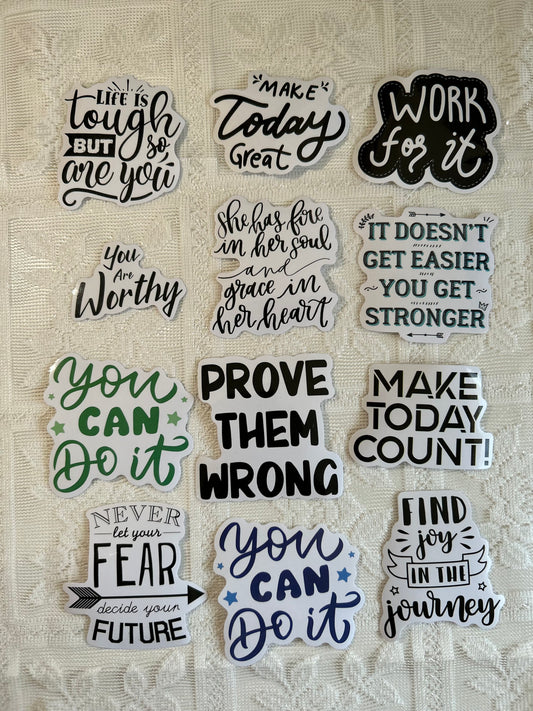 LIFE IS
tough
BUT so
are you
MAKE
Today
Great
WORK
for it
You
Are
Worthy
she has fire
in her soul
and
grace in
her heart
IT DOESN'T
GET EASIER
YOU GET
STRONGER
You
CAN
Do it
PROVE
THEM
WRONG
MAKE
TODAY
COUNT!
NEVER
let your
FEAR
decide your
FUTURE
You
CAN
Do it
FIND
joy
IN THE
journey